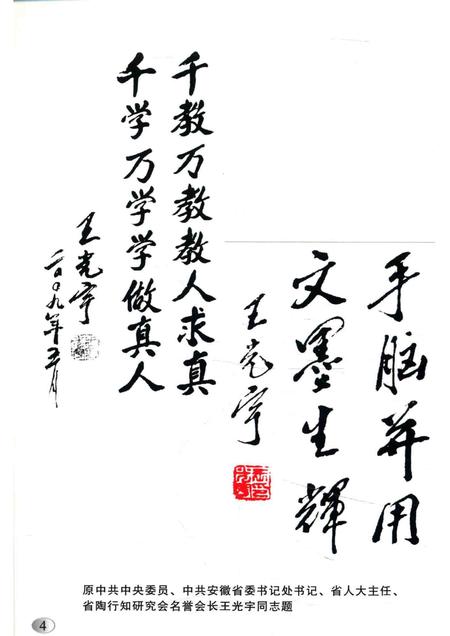 千教万教教人求真
千学万学学做真人
王光宇
二〇〇九年五月
手脑并用
文墨生輝
王光宇
原中共中央委员、中共安徽省委书记处书记、省人大主任、
省陶行知研究会名誉会长王光宇同志题
4